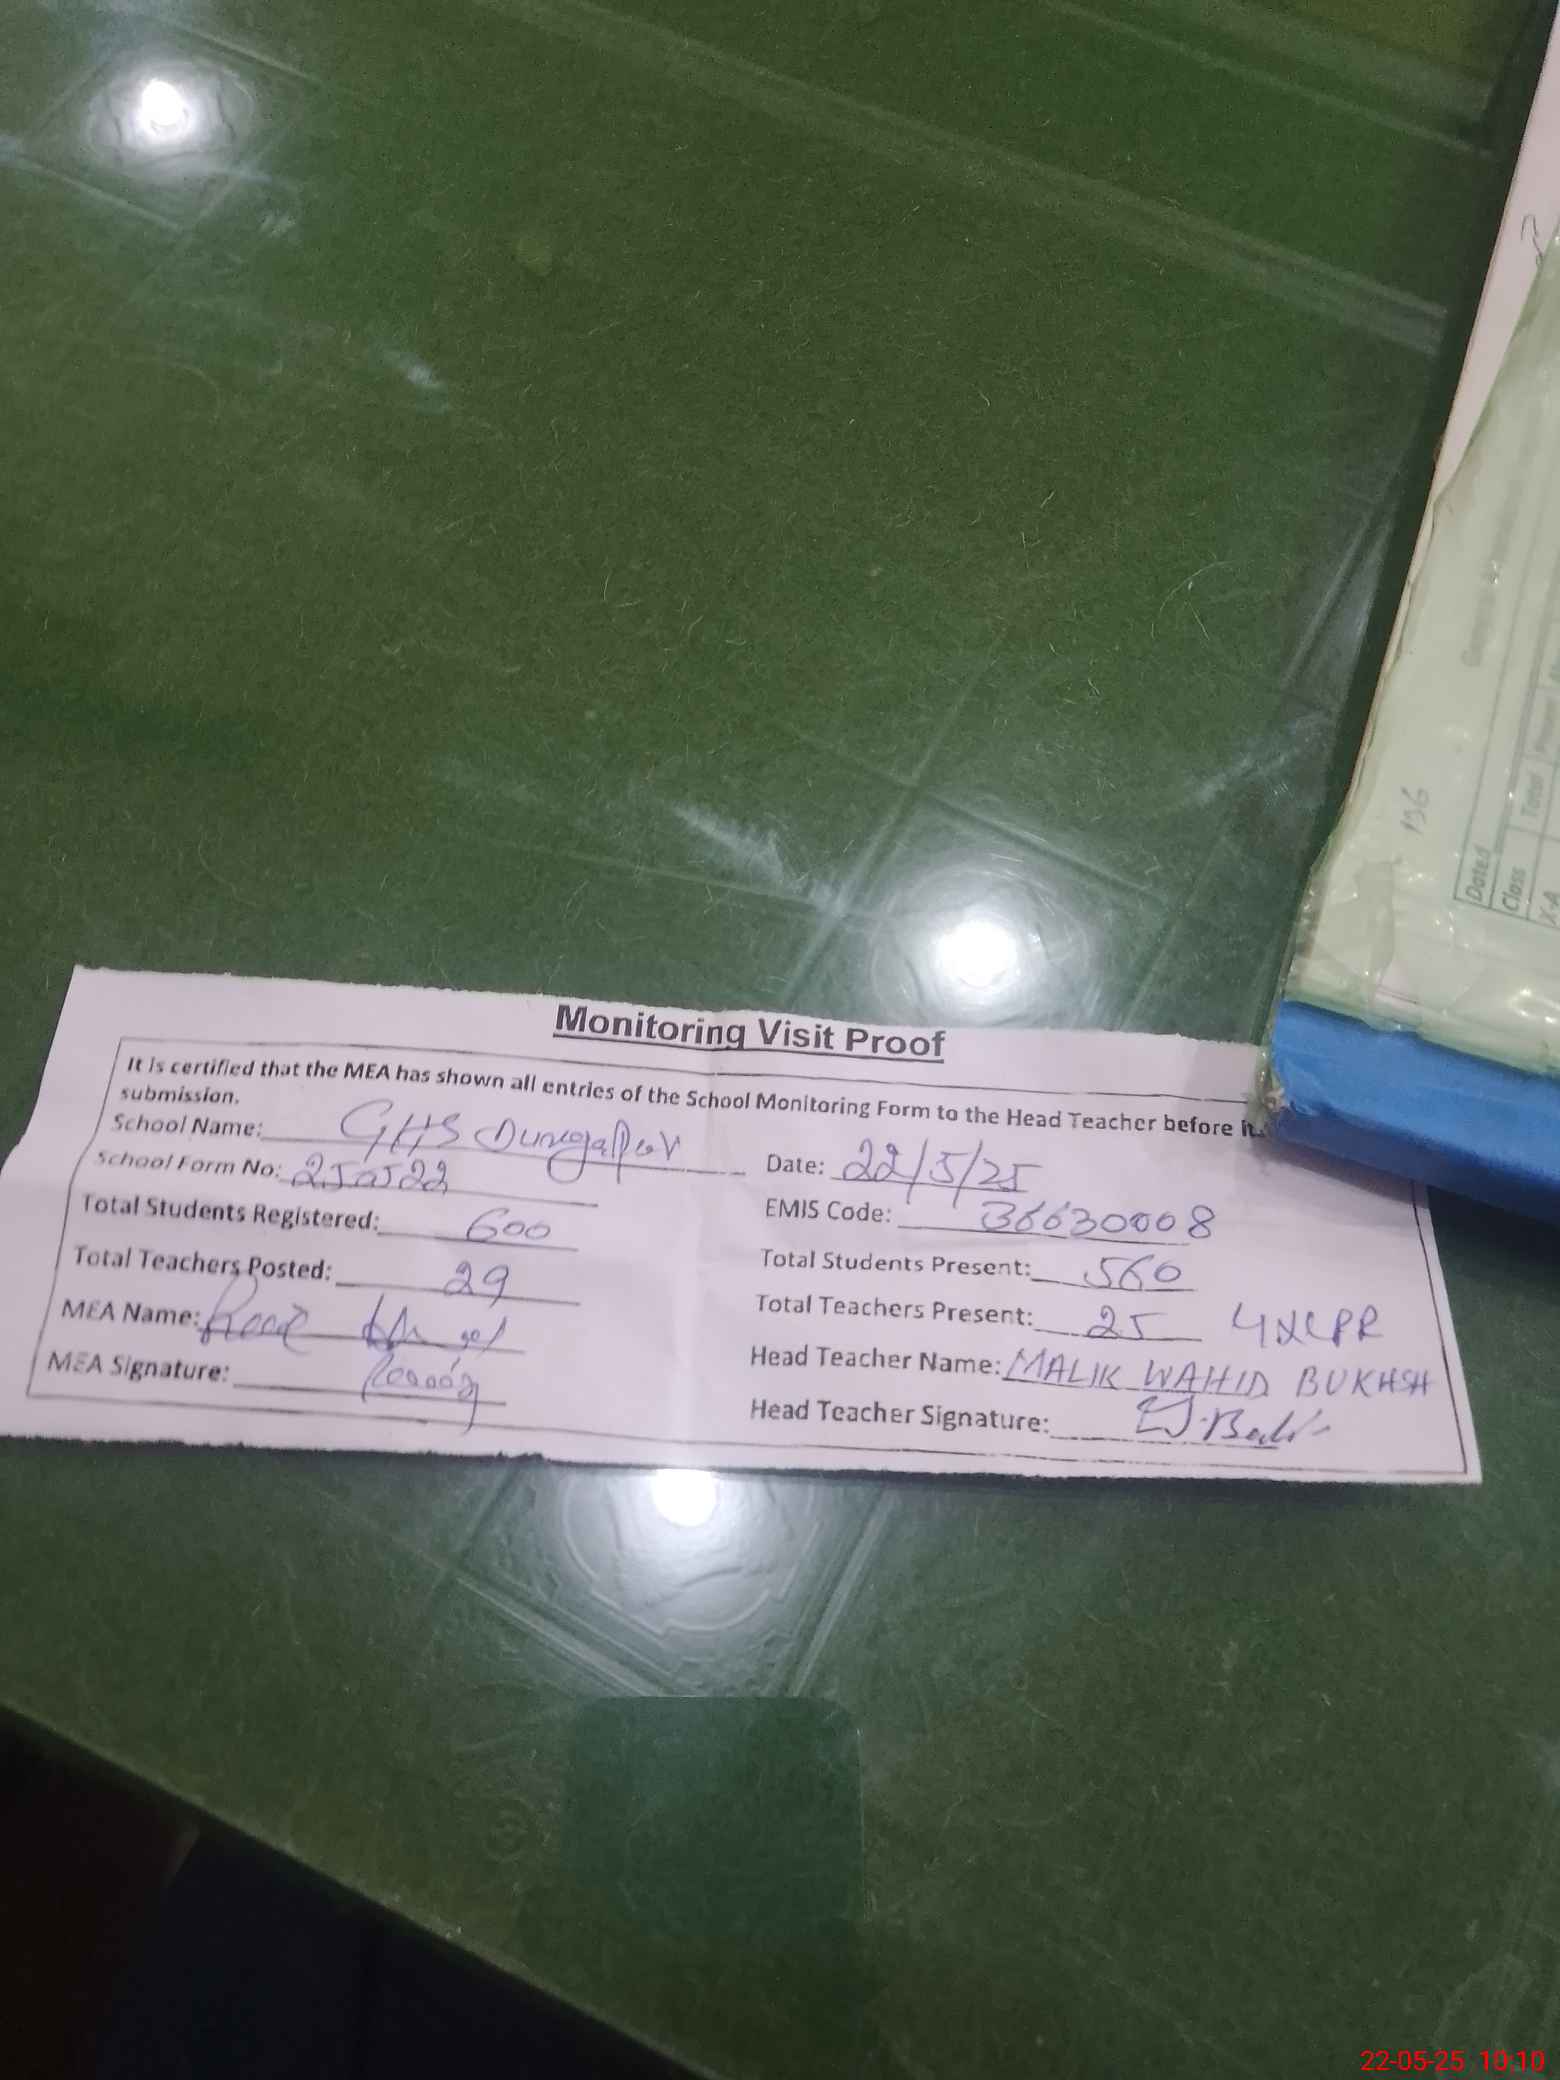 Monitoring Visit Proof
It is certified that the MEA has shown all entries of the School Monitoring Form to the Head Teacher before it.
submission.
School Name: GHS Dunyapur
Date: 22/5/25
School Form No: 250522
EMIS Code: 36630008
Total Students Registered: 600
Total Students Present: 560
Total Teachers Posted: 29
Total Teachers Present: 25 4XLPR
MEA Name:
Head Teacher Name: MALIK WAHID BUKHSH
MEA Signature:
Head Teacher Signature:
Dated
Class Total
X-A
22-05-25 10:10